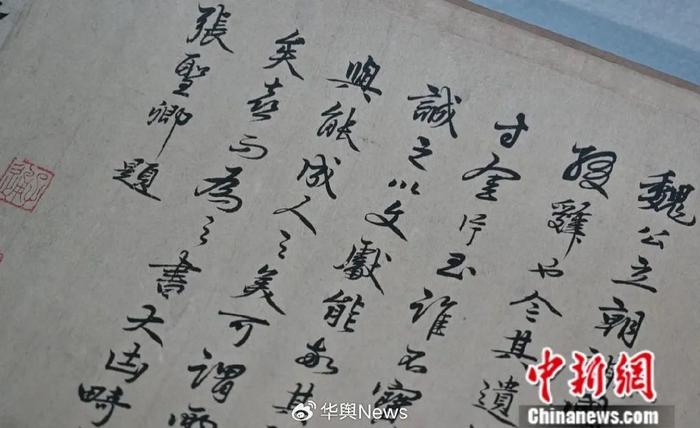 魏公立朝
殁辞也今其遗
寸金片玉谁不宝
誠之以文獻能敬其
與能成人之美可謂兩
矣喜而為之書大凶畸
張聖卿題
中新网
Chinanews.com
华舆News